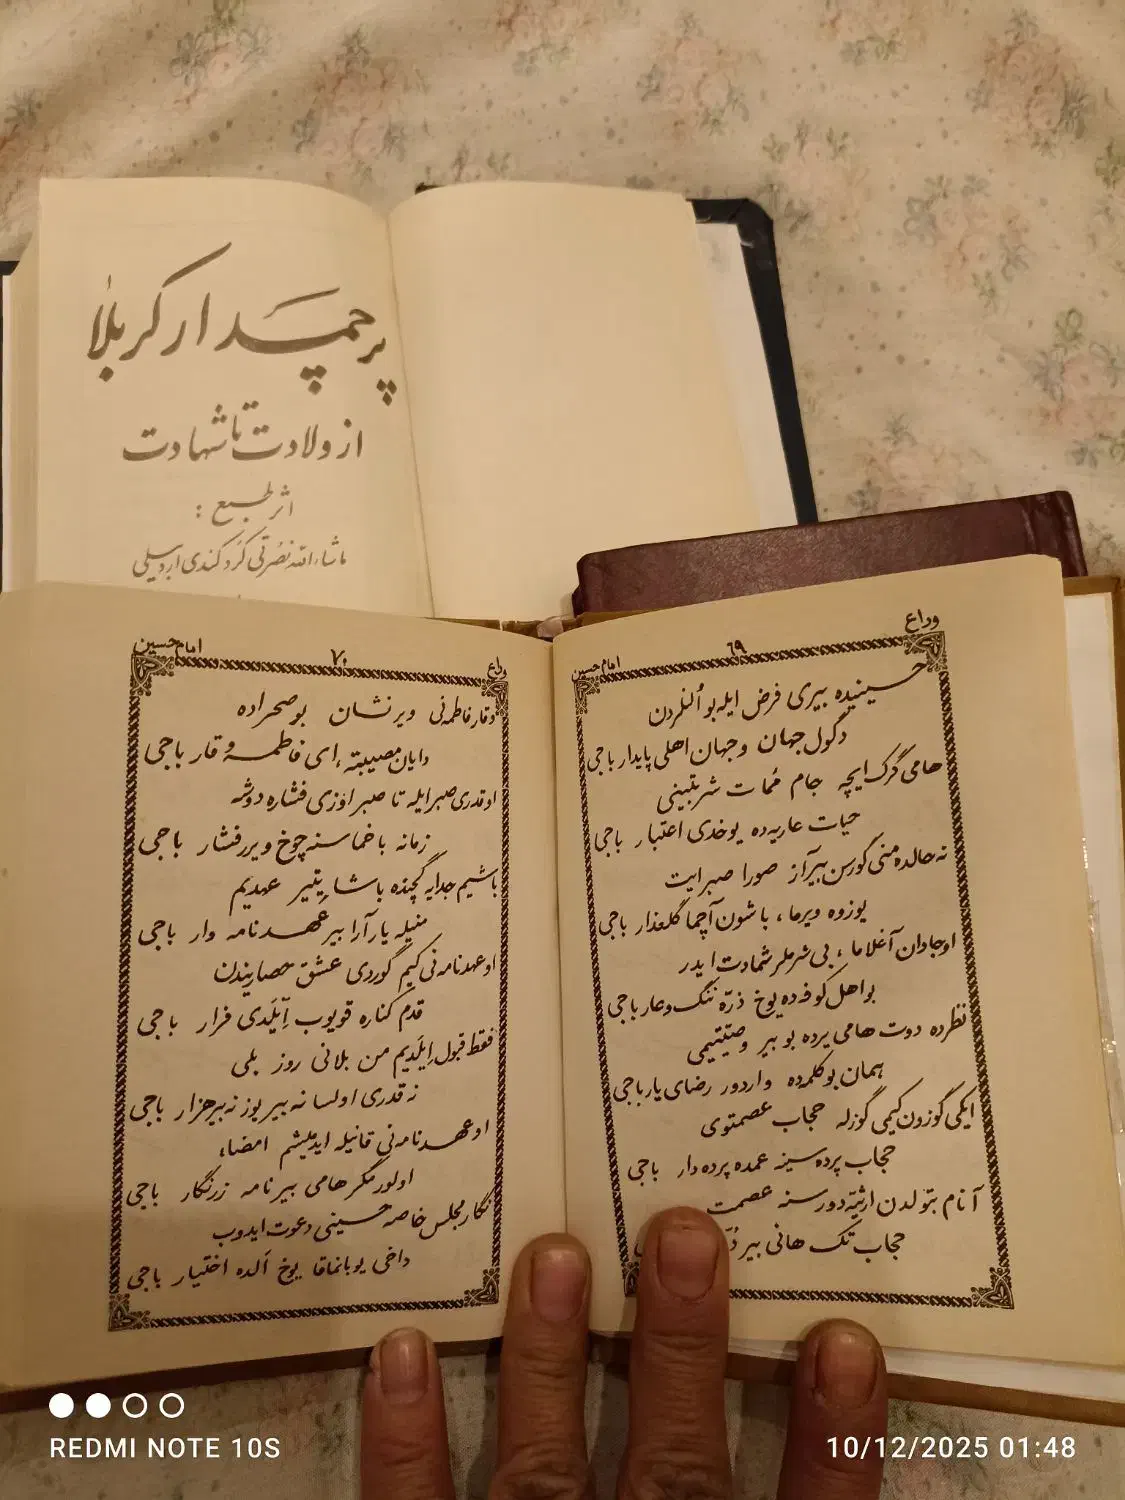 پرچمدار کربلا
از ولادت تا شهادت
اثر طبع :
ماشاءالله نصرتی کردکندی اردبیلی
وداع
۶۹
امام حسین
حسینیده بیری فرض ایله بو اُلنلردن
دگول جهان و جهان اهلی پایدار باجی
هامی گرک ایچه جام مُمات شربتینی
حیات عاریه ده یوخدی اعتبار باجی
نه حالده منی گورسن بیرآز صورا صبرایت
یوزوه ویرما ، باشون آچما گلعذار باجی
اوجادان آغلاما ، بی شرملر شماتت ایدر
بو اهل کوفه ده یوخ ذرّه ننگ وعار باجی
نظرده دوت هامی یرده بو بیر وصیّتیمی
همان بو کلمه ده واردور رضای یار باجی
ایکی گوزون کیمی گوزله حجاب عصمتوی
حجاب پرده سینه عمده پرده دار باجی
آنام بتولدن ارثیّه دور سنه عصمت
حجاب تک هانی بیر
وداع
۷۰
امام حسین
وقار فاطمه نی ویر نشان بو صحراده
دایان مصیبته ، ای فاطمه وقار باجی
اوقدری صبر ایله تا صبر اوزی فشاره دوشه
زمانه باخماسنه چوخ ویرر فشار باجی
باشیم جدایه گچنده باشا یتیر عهدیم
منیله یار آرا بیر عهدنامه وار باجی
او عهدنامه نی کیم گوردی عشق حصاریندن
قدم کناره قویوب اِیلَدی فرار باجی
فقط قبول اِیلَدیم من بلانی روز بلی
نه قدری اولسا نه بیر یوز نه بیر هزار باجی
او عهدنامه نی قانیله ایدمیشم امضاء
اولور مگر هامی بیر نامه زرنگار باجی
نگار مجلس خاصه حسینی دعوت ایدوب
داخی یوبانماقا یوخ اَلده اختیار باجی
REDMI NOTE 10S
10/12/2025 01:48